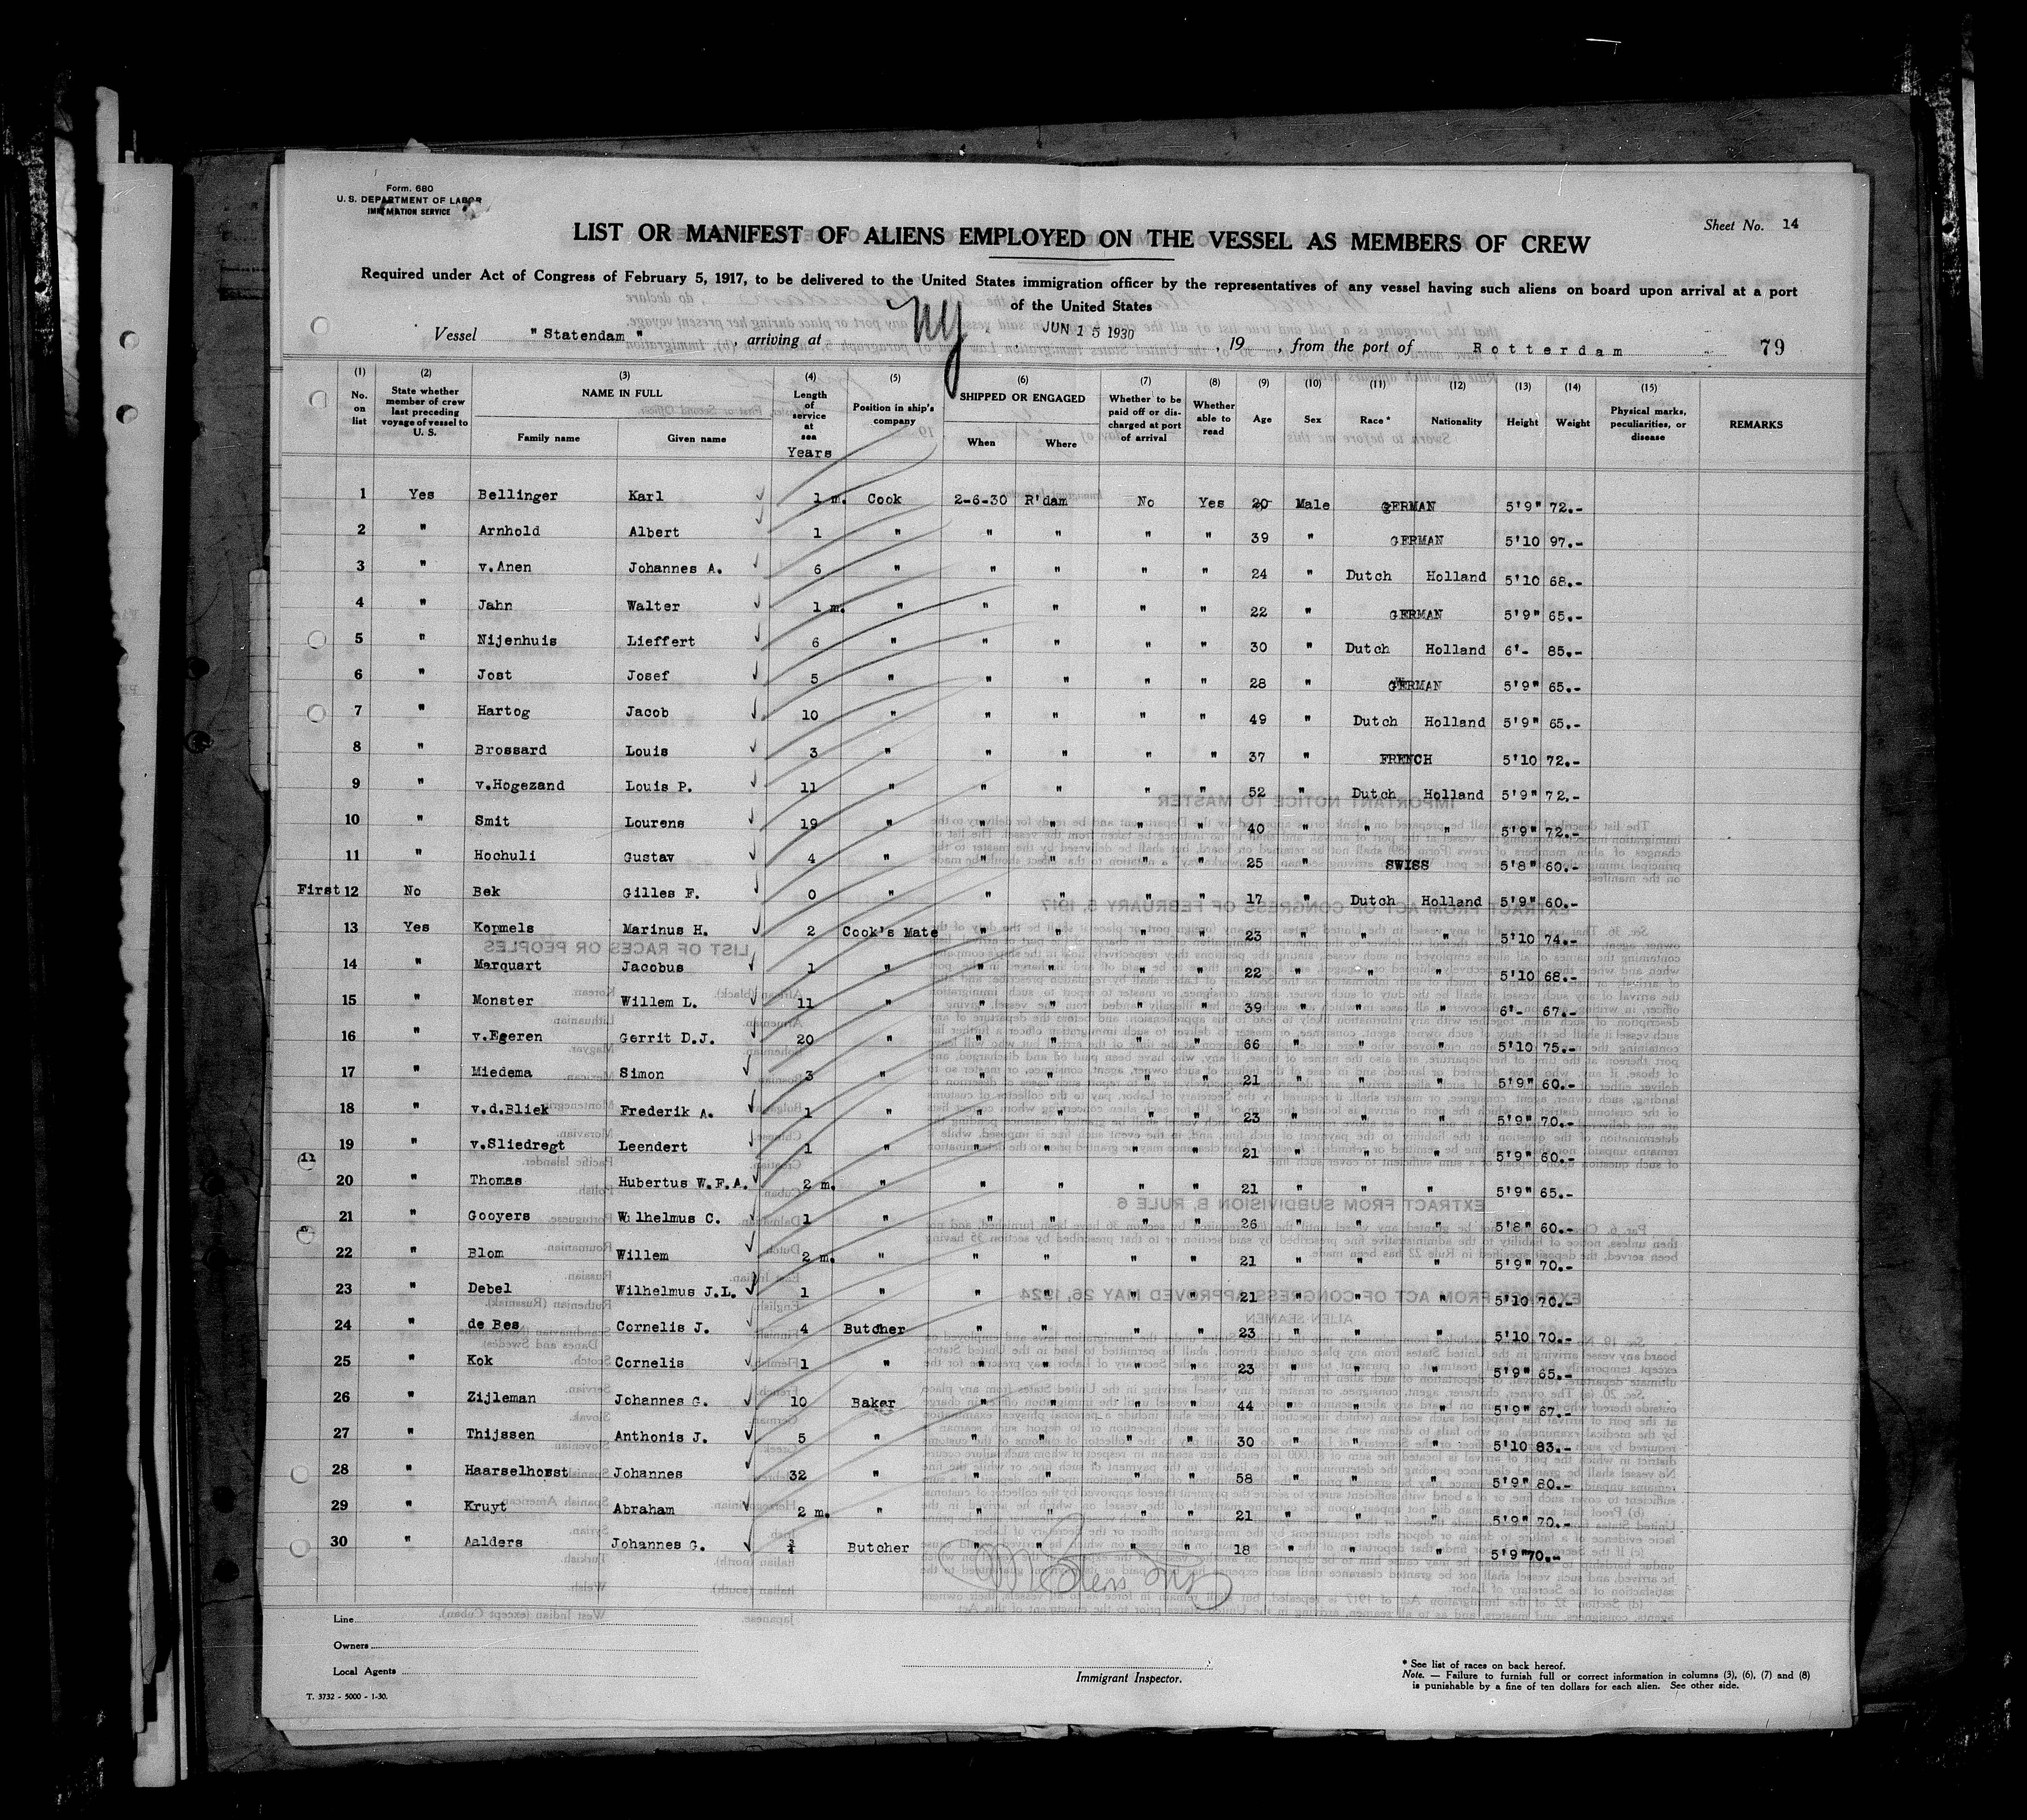 Form. 680
U. S. DEPARTMENT OF LABOR
IMMIGRATION SERVICE
Sheet No. 14
LIST OR MANIFEST OF ALIENS EMPLOYED ON THE VESSEL AS MEMBERS OF CREW
Required under Act of Congress of February 5, 1917, to be delivered to the United States immigration officer by the representatives of any vessel having such aliens on board upon arrival at a port
of the United States
Vessel "Statendam", arriving at NY, JUN 15 1930, 19 , from the port of Rotterdam 79
(1) No. on list (2) State whether member of crew last preceding voyage of vessel to U. S. (3) NAME IN FULL Family name Given name (4) Length of service at sea Years (5) Position in ship's company (6) SHIPPED OR ENGAGED When Where (7) Whether to be paid off or discharged at port of arrival (8) Whether able to read (9) Age (10) Sex (11) Race * (12) Nationality (13) Height (14) Weight (15) Physical marks, peculiarities, or disease REMARKS
1 Yes Bellinger Karl 1 m. Cook 2-6-30 R'dam No Yes 20 Male GERMAN 5'9" 72.-
2 " Arnhold Albert 1 " " " " " 39 " GERMAN 5'10 97.-
3 " v.Anen Johannes A. 6 " " " " " 24 " Dutch Holland 5'10 68.-
4 " Jahn Walter 1 m. " " " " " 22 " GERMAN 5'9" 65.-
5 " Nijenhuis Lieffert 6 " " " " " 30 " Dutch Holland 6'- 85.-
6 " Jost Josef 5 " " " " " 28 " GERMAN 5'9" 65.-
7 " Hartog Jacob 10 " " " " " 49 " Dutch Holland 5'9" 65.-
8 " Brossard Louis 3 " " " " " 37 " FRENCH 5'10 72.-
9 " v.Hogezand Louis P. 11 " " " " " 52 " Dutch Holland 5'9" 72.-
10 " Smit Lourens 19 " " " " " 40 " " " 5'9" 72.-
11 " Hochuli Gustav 4 " " " " " 25 " SWISS 5'8" 60.-
First 12 No Bek Gilles F. 0 " " " " " 17 " Dutch Holland 5'9" 60.-
13 Yes Kopmels Marinus H. 2 Cook's Mate " " " " 23 " " " 5'10 74.-
14 " Marquart Jacobus 1 " " " " " 22 " " " 5'10 68.-
15 " Monster Willem L. 11 " " " " " 39 " " " 6'- 67.-
16 " v.Egeren Gerrit D.J. 20 " " " " " 66 " " " 5'10 75.-
17 " Miedema Simon 3 " " " " " 21 " " " 5'9" 60.-
18 " v.d.Bliek Frederik A. 1 " " " " " 23 " " " 5'9" 70.-
19 " v.Sliedregt Leendert 1 " " " " " 21 " " " 5'9" 60.-
11
20 " Thomas Hubertus W.F.A. 2 m. " " " " " 21 " " " 5'9" 65.-
21 " Gooyers Wilhelmus C. 1 " " " " " 26 " " " 5'8" 60.-
22 " Blom Willem 2 m. " " " " " 21 " " " 5'9" 70.-
23 " Debel Wilhelmus J.L. 1 " " " " " 21 " " " 5'10 70.-
24 " de Bes Cornelis J. 4 Butcher " " " " 23 " " " 5'10 70.-
25 " Kok Cornelis 1 " " " " " 23 " " " 5'9" 65.-
26 " Zijleman Johannes G. 10 Baker " " " " 44 " " " 5'9" 67.-
27 " Thijssen Anthonis J. 5 " " " " " 30 " " " 5'10 83.-
28 " Haarselhorst Johannes 32 " " " " " 58 " " " 5'9" 80.-
29 " Kruyt Abraham 2 m. " " " " " 21 " " " 5'9" 70.-
30 " Aalders Johannes G. ¾ Butcher " " " " 18 " " " 5'9" 70.-
Line
Owners
Local Agents
Immigrant Inspector.
* See list of races on back hereof.
Note. — Failure to furnish full or correct information in columns (3), (6), (7) and (8)
is punishable by a fine of ten dollars for each alien. See other side.
T. 3732 - 5000 - 1-30.